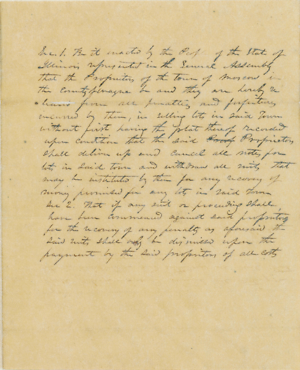 Sec 1. Be it enacted by the Peop of the State of
Illinois represented in the General Assembly
that the Proprietors of the town of Moscow in
the County and they are hereby
from all penalties and forfeitures
incurred by them, in selling lots in said town
without first having the plat thereof recorded
upon condition that the said Proprietors
shall deliver up and cancel all notes for
lots in said town and withdraw all suits that
may be instituted by them for any recovery of
money promised for any lots in said town
Sec 2. That if any suit or proceeding shall
have been commenced against said proprietors
for the recovery of any penalty as aforesaid the
said suits shall only be dismissed upon the
payment by the said proprietors of all costs